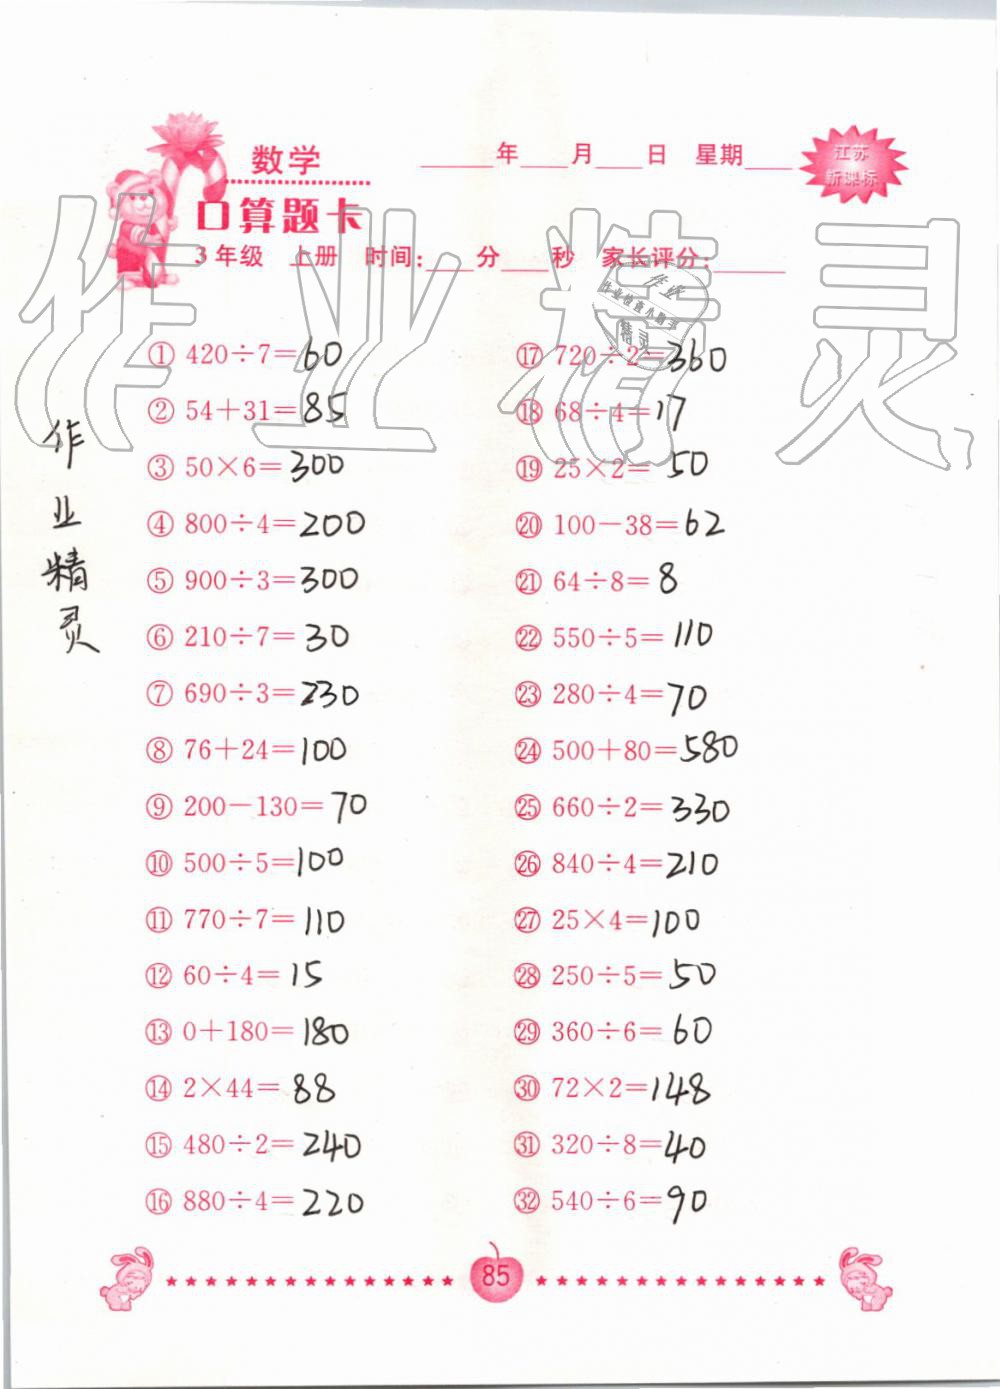 数学
____年____月____日 星期____
江苏
新课标
口算题卡
3年级 上册 时间:____分____秒 家长评分:______
作业精灵
作业
作业检查小助手
精灵
作业精灵
① 420÷7=60
② 54+31=85
③ 50×6=300
④ 800÷4=200
⑤ 900÷3=300
⑥ 210÷7=30
⑦ 690÷3=230
⑧ 76+24=100
⑨ 200-130=70
⑩ 500÷5=100
⑪ 770÷7=110
⑫ 60÷4=15
⑬ 0+180=180
⑭ 2×44=88
⑮ 480÷2=240
⑯ 880÷4=220
⑰ 720÷2=360
⑱ 68÷4=17
⑲ 25×2=50
⑳ 100-38=62
㉑ 64÷8=8
㉒ 550÷5=110
㉓ 280÷4=70
㉔ 500+80=580
㉕ 660÷2=330
㉖ 840÷4=210
㉗ 25×4=100
㉘ 250÷5=50
㉙ 360÷6=60
㉚ 72×2=148
㉛ 320÷8=40
㉜ 540÷6=90
85